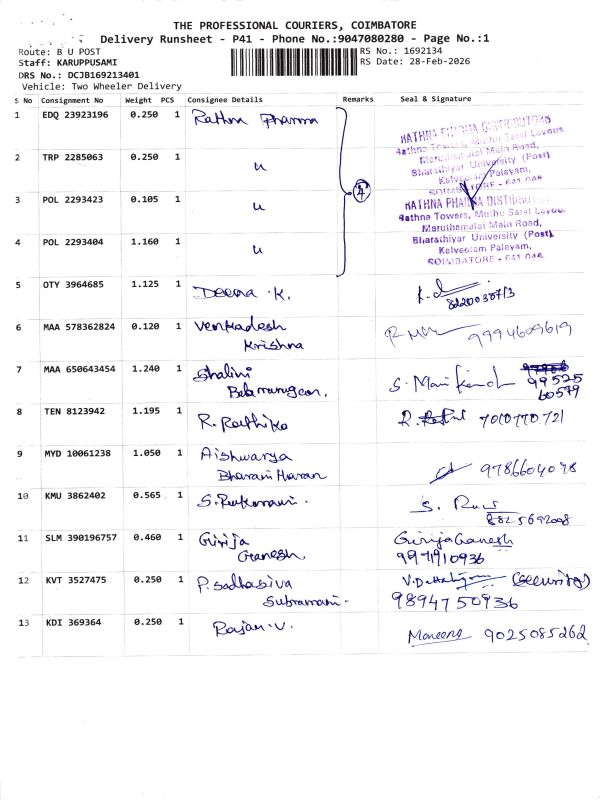 THE PROFESSIONAL COURIERS, COIMBATORE
Delivery Runsheet - P41 - Phone No.:9047080280 - Page No.:1
Route: B U POST
RS No.: 1692134
Staff: KARUPPUSAMI
RS Date: 28-Feb-2026
DRS No.: DCJB169213401
Vehicle: Two Wheeler Delivery
S No Consignment No Weight PCS Consignee Details Remarks Seal & Signature
1 EDQ 23923196 0.250 1 Rathna Pharma
RATHNA PHARMA DISTRIBUTORS
Rathna Towers, Muthu Saral Layous
Maruthamalai Main Road,
Bharathiyar University (Post)
Kalveeram Palayam,
COIMBATORE - 641 046
2 TRP 2285063 0.250 1 u
3 POL 2293423 0.105 1 u
4
RATHNA PHARMA DISTRIBUTORS
Rathna Towers, Muthu Saral Layous
Maruthamalai Main Road,
Bharathiyar University (Post)
Kalveeram Palayam,
COIMBATORE - 641 046
4 POL 2293404 1.160 1 u
5 OTY 3964685 1.125 1 Deena .K.
6 MAA 578362824 0.120 1 Venkadesh
Krishna
9994609619
7 MAA 650643454 1.240 1 Shalini
Balamurugan.
S. Manikand
99525
60579
8 TEN 8123942 1.195 1 R. Rathika
7010770721
9 MYD 10061238 1.050 1 Aishwarya
Bharani Haran
9786604078
10 KMU 3862402 0.565 1 S. Rukmani.
8825692008
11 SLM 390196757 0.460 1 Girija
Ganesh.
Girija Ganesh
9971910936
12 KVT 3527475 0.250 1 P. Sadhasiva
Subramani.
(Security)
9894750936
13 KDI 369364 0.250 1 Rajan.V.
9025085262